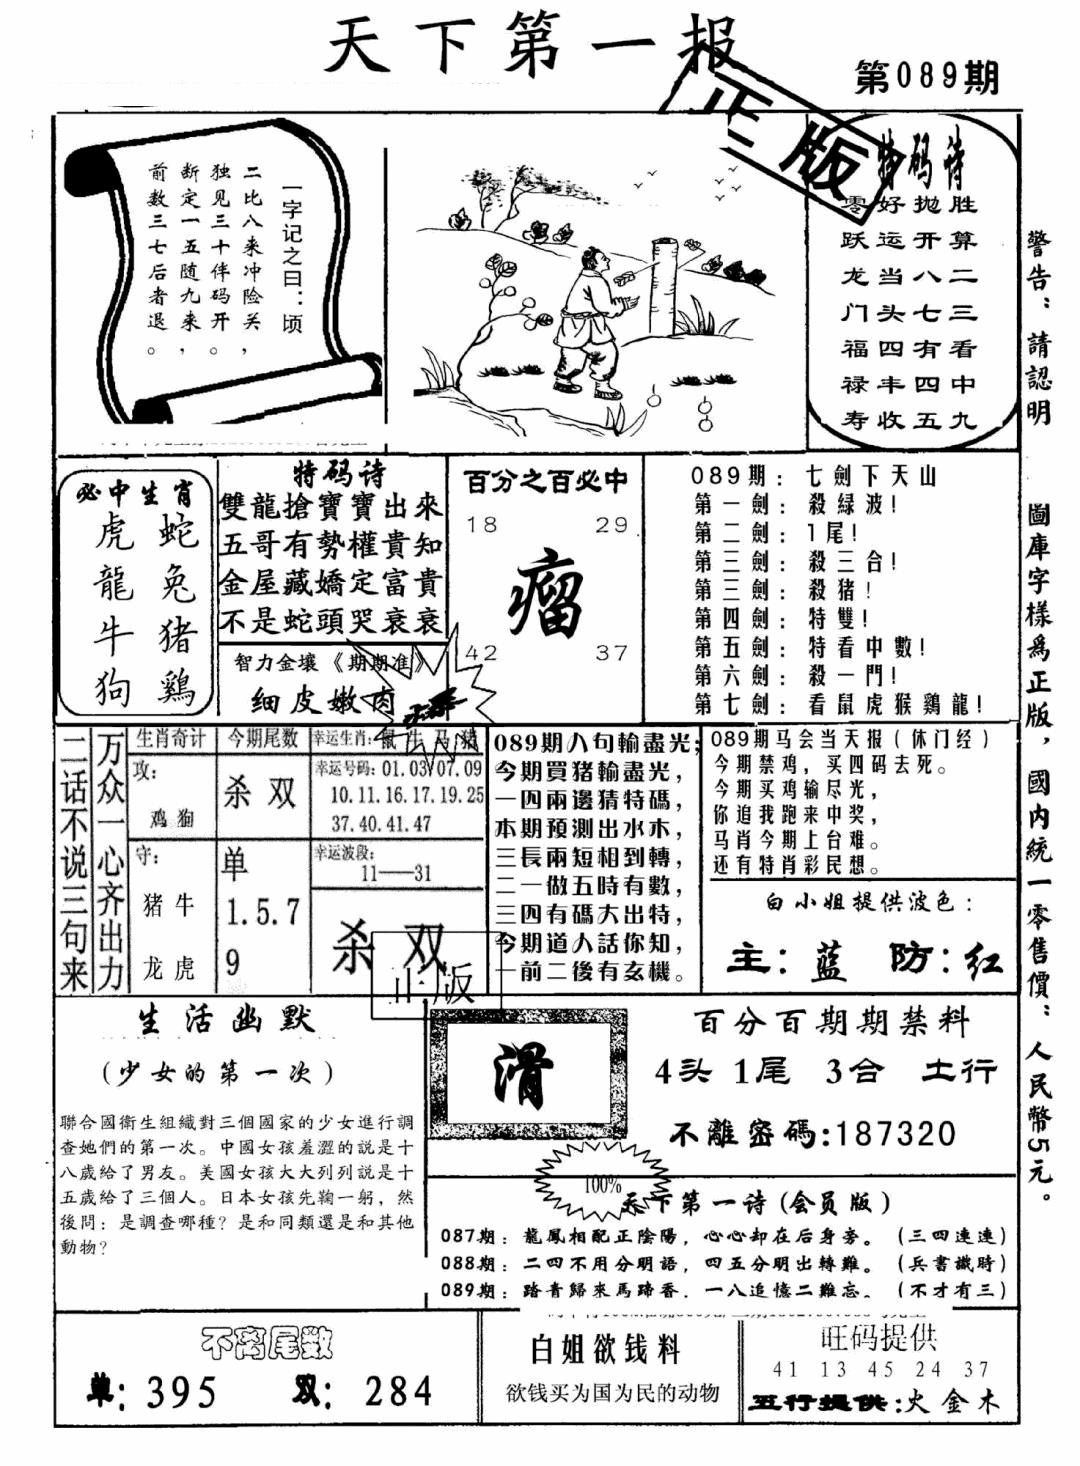 天下第一报
第089期
正版
一字记之曰：顷
二比八来冲险关，
独见三十伴码开。
断定一五随九来，
前数三七后者退。
特码诗
零好抛胜
跃运开算
龙当八二
门头七三
福四有看
禄丰四中
寿收五九
警告：請認明
圖庫字樣爲正版，國内統一零售價：人民幣5元。
必中生肖
虎 蛇
龍 兔
牛 猪
狗 鷄
特码诗
雙龍搶寶寶出來
五哥有勢權貴知
金屋藏嬌定富貴
不是蛇頭哭衰衰
智力金壤《期期准》
细皮嫩肉
百分之百必中
18 29
瘤
42 37
089期：七劍下天山
第一劍：殺緑波！
第二劍：1尾！
第三劍：殺三合！
第三劍：殺猪！
第四劍：特雙！
第五劍：特看中數！
第六劍：殺一門！
第七劍：看鼠虎猴鷄龍！
二话不说三句来
万众一心齐出力
生肖奇计
攻：
鸡 狗
守：
猪 牛
龙 虎
今期尾数
杀 双
单
1.5.7
9
幸运生肖：鼠 牛 马 猪
幸运号码：01.03.07.09
10.11.16.17.19.25
37.40.41.47
幸运波段：
11——31
杀 双
正版
089期八句輸盡光；
今期買猪輸盡光，
一四兩邊猜特碼，
本期預測出水木，
三長兩短相到轉，
二一做五時有數，
三四有碼大出特，
今期道人話你知，
一前二後有玄機。
089期马会当天报（休门经）
今期禁鸡，买四码去死。
今期买鸡输尽光，
你追我跑来中奖，
马肖今期上台难。
还有特肖彩民想。
白小姐提供波色：
主：蓝 防：红
生活幽默
（少女的第一次）
聯合國衛生組織對三個國家的少女進行調
查她們的第一次。中國女孩羞澀的説是十
八歲給了男友。美國女孩大大列列説是十
五歲給了三個人。日本女孩先鞠一躬，然
後問：是調查哪種？是和同類還是和其他
動物？
滑
百分百期期禁料
4头 1尾 3合 土行
不離密碼：187320
100%
天下第一诗（会员版）
087期：龍鳳相配正陰陽，心心却在后身旁。（三四速速）
088期：二四不用分明語，四五分明出轉難。（兵書識時）
089期：踏青歸來馬蹄香，一八追憶二難忘。（不才有三）
不离尾数
单：395 双：284
白姐欲钱料
欲钱买为国为民的动物
旺码提供
41 13 45 24 37
五行提供：火金木